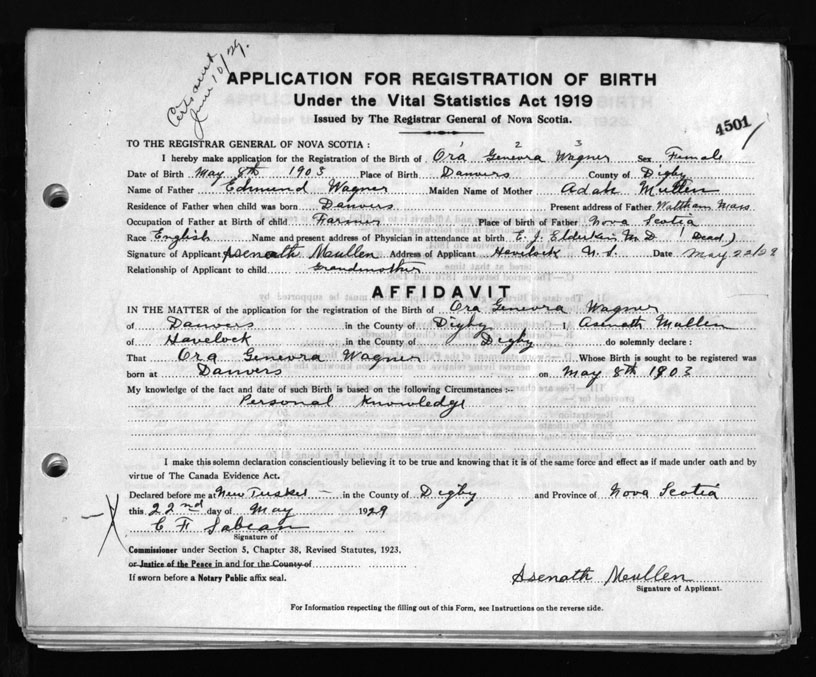 Certs sent
June 10/29.
APPLICATION FOR REGISTRATION OF BIRTH
Under the Vital Statistics Act 1919
Issued by The Registrar General of Nova Scotia.
4501
TO THE REGISTRAR GENERAL OF NOVA SCOTIA :
1 2 3
I hereby make application for the Registration of the Birth of Ora Genevra Wagner Sex Female
Date of Birth May 8th 1903 Place of Birth Danvers County of Digby
Name of Father Edmund Wagner Maiden Name of Mother Adah Mullen
Residence of Father when child was born Danvers Present address of Father Waltham Mass
Occupation of Father at Birth of child Farmer Place of Birth of Father Nova Scotia
Race English Name and present address of Physician in attendance at birth E. J. Elderkin M.D. (Dead)
Signature of Applicant Asenath Mullen Address of Applicant Havelock N.S. Date May 22/29
Relationship of Applicant to child Grandmother
AFFIDAVIT
IN THE MATTER of the application for the registration of the Birth of Ora Genevra Wagner
of Danvers in the County of Digby I, Asenath Mullen
of Havelock in the County of Digby do solemnly declare :
That Ora Genevra Wagner Whose Birth is sought to be registered was
born at Danvers on May 8th 1903
My knowledge of the fact and date of such Birth is based on the following Circumstances :-
Personal Knowledge
I make this solemn declaration conscientiously believing it to be true and knowing that it is of the same force and effect as if made under oath and by
virtue of The Canada Evidence Act.
Declared before me at New Tusket in the County of Digby and Province of Nova Scotia
this 22nd day of May 1929
C F Sabean
Signature of
Commissioner under Section 5, Chapter 38, Revised Statutes, 1923.
or Justice of the Peace in and for the County of
If sworn before a Notary Public affix seal.
Asenath Mullen
Signature of Applicant.
For Information respecting the filling out of this Form, see Instructions on the reverse side.